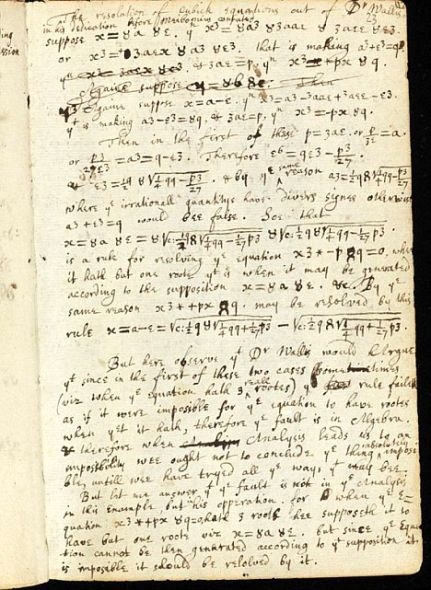 The resolution of Cubick equations out of Dr Wallis
in his
suppose x = 8a 8e. yn x3 = 8a3 83aae 83aee 8e3.
or x3 - 3aex = 8a3 8e3. that is making a3+e3=q
3ae = p. yn x3 px 8q.
Againe suppose x = a-e. yn x3 = a3-3aae+3aee-e3.
yt is making a3-e3=8q. & 3ae=p. yn x3 = -px 8q.
Then in the first of these p = 3ae. or p/3e = a.
or p3/27 = a3 = q-e3. Therefore e6 = qe3 - p3/27.
& e3 = ½q 8 √¼qq - p3/27. & by ye same reason a3 = ½q 8 √¼qq - p3/27
where ye irrationall quantitys have divers signes otherwise
a3+e3=q would bee false. Soe that
x = 8a 8e = 8 √c: ½q 8 √¼qq - 1/27 p3 8 √c: ½q 8 √¼qq - 1/27 p3.
is a rule for resolving ye equation x3 * - px 8q = 0. when
it hath but one roote yt is when it may be generated
according to the supposition x = 8a 8e. &c. By ye
same reason x3 * + px 8q. may be resolved by this
rule x = a-e = √c: ½q 8 √¼qq + 1/27 p3 - √c: ½q 8 √¼qq + 1/27 p3.
But here observe yt Dr Wallis would Argue
yt since in the first of these two cases sometimes
(viz when ye equation hath 3 reall roots) ye rule failes
as if it were impossible for ye equation to have roots
when yet it hath, therefore ye fault is in Algebra.
& therefore when Analysis leads us to an
impossibility wee ought not to conclude ye thing absolutely impossi-
ble, untill wee have tryed all ye ways yt may bee.
But let me answer yt ye fault is not in ye Analysis
in this Example, but his operation. for when ye E-
quation x3 * + px 8q = 0 hath 3 roots hee supposeth it to
have but one roote viz x = 8a 8e. but since ye Equa-
tion cannot be then generated according to yt supposition it
is impossible it should be resolved by it.